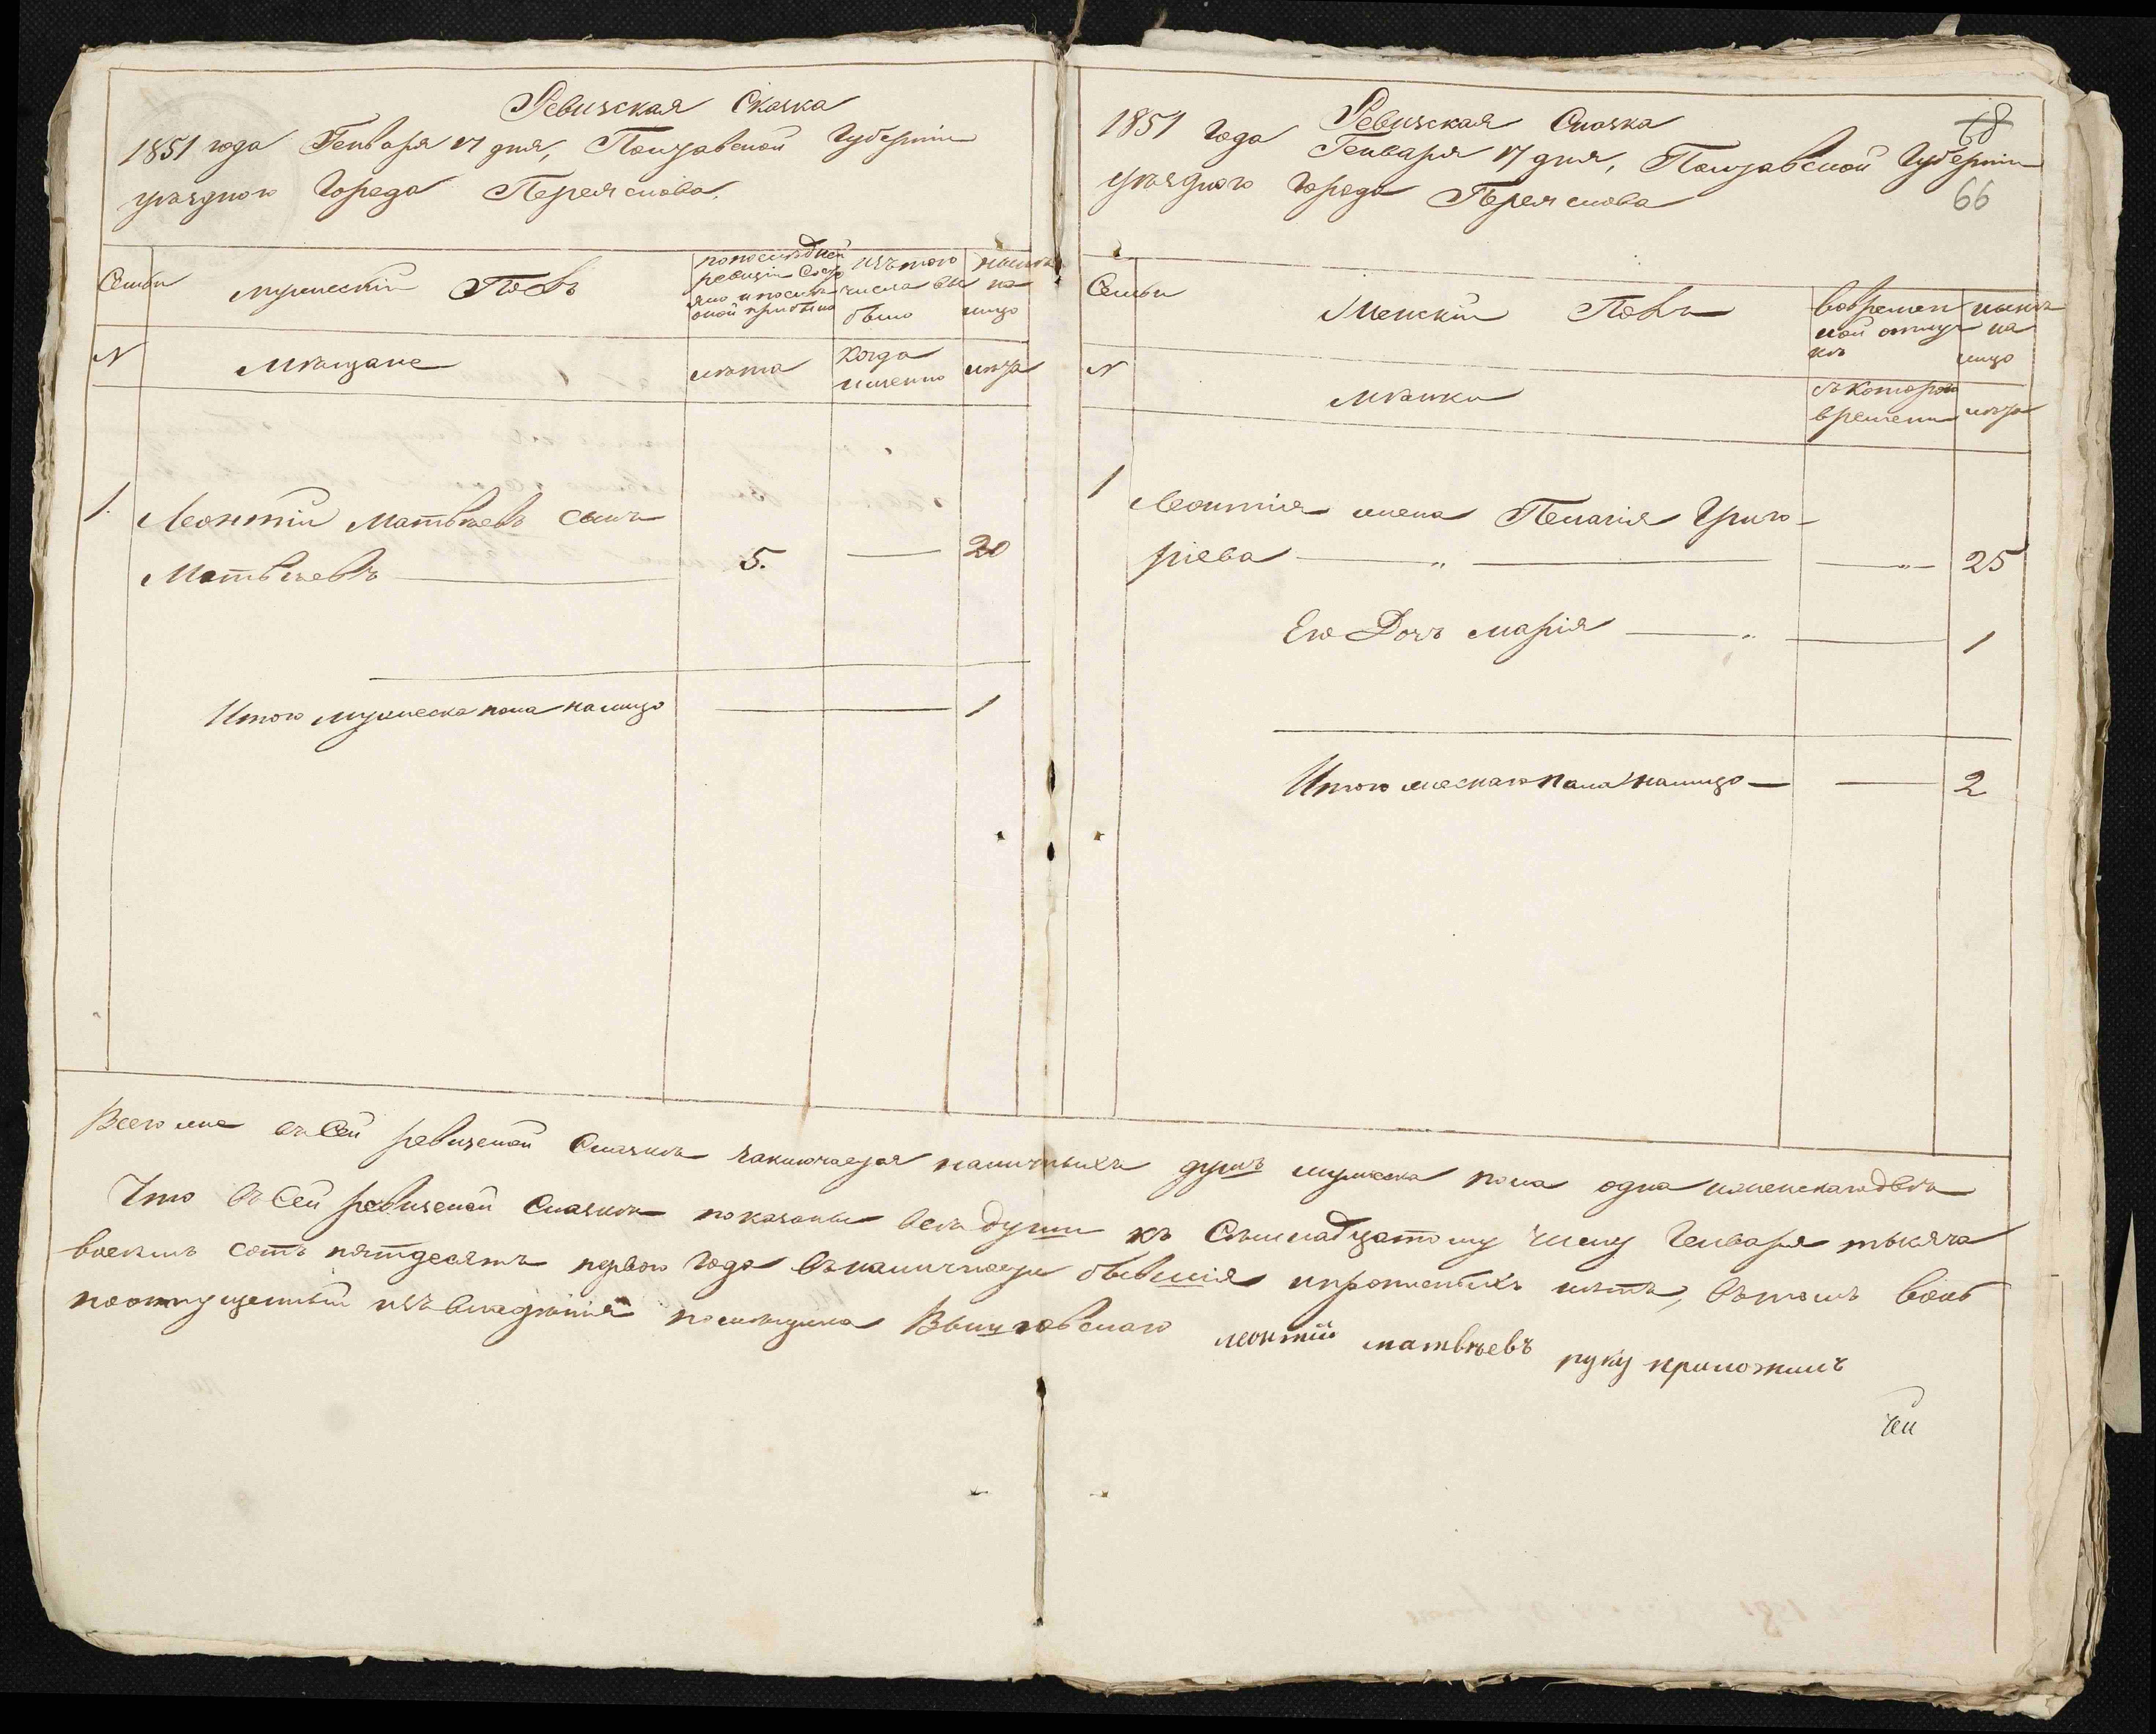 Ревизская Сказка
1851 года Генваря 17 дня, Полтавской Губернiи
уѣзднаго Города Переяслова.
Семьи
Мужескiй Полъ
по последней ревизiи состояло и после оной прибыло
изъ того числа выбыло
нынѣ на лицо
N
Мѣщане
лѣта
когда именно
лѣта
1. Леонтiй Матвѣевъ сынъ
Матвѣевъ — 5. — 20
Итого мужеска пола налицо — 1
68
66
Ревизская Сказка
1851 Года Генваря 17 дня, Полтавской Губернiи
уѣзднаго Города Переяслова
Семьи
Женскiй Полъ
во временной отлучкѣ
нынѣ на лицо
N
Мѣщанки
съ котораго времени
лѣта
1 Леонтiя жена Пелагiя Григо-
рiева — „ — — „ — 25
Его Дочь Марiя — „ — 1
Итого женскаго пола налицо — — 2
Всего же въ сей ревизской Сказкѣ заключается наличныхъ душъ мужеска пола одна и женскаго двѣ
Что въ Сей ревизской Сказкѣ показаны всѣ души къ Семнадцатому числу Генваря тысяча
восемь сотъ пятдесятъ первого Года въ наличности бывшiя и прописныхъ нѣтъ, въ томъ
вольноотпущенный изъ владѣнiя помѣщика Леонтiй Матвѣевъ руку приложилъ